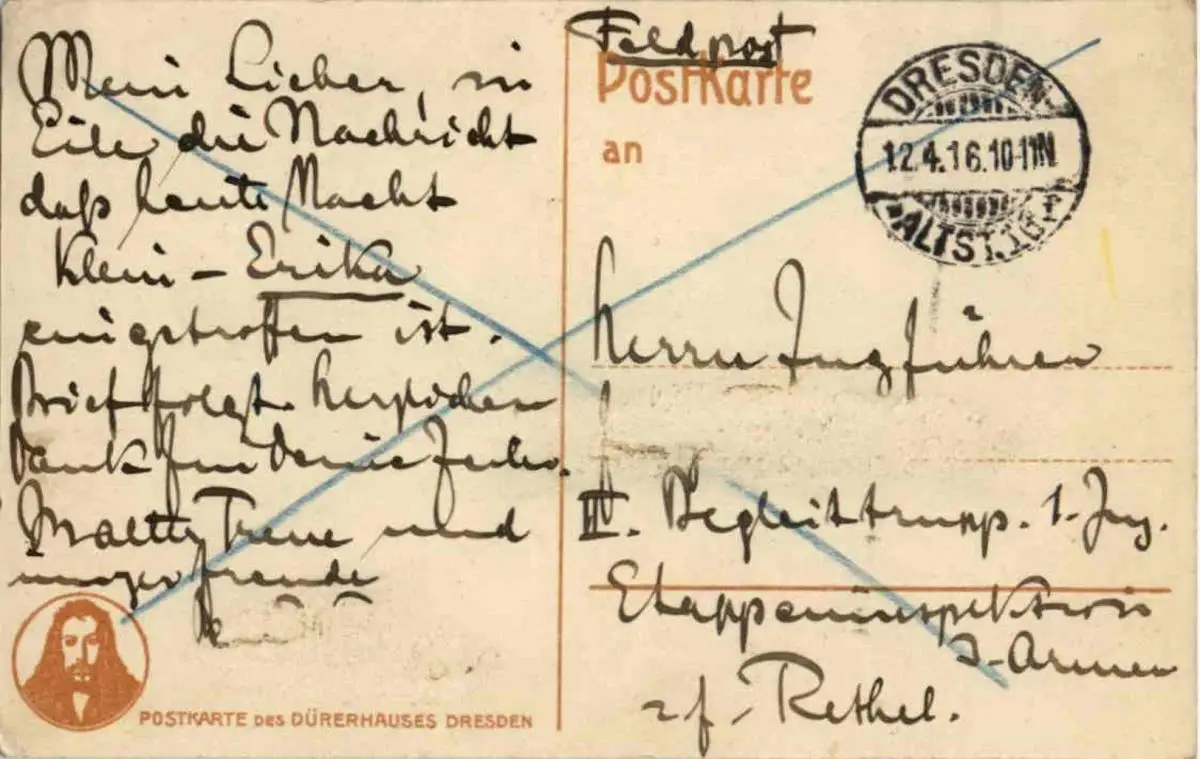 Mein Lieber, in
Eile die Nachricht
daß heute Nacht
Klein - Erika
eingetroffen ist.
Brief folgt. Herzlichen
Dank für Deine
Treue und
unser freude
POSTKARTE DES DÜRERHAUSES DRESDEN
Feldpost
Postkarte
an
DRESDEN
12.4.16.10-11N
ALTST.
Herrn Zugführer
II. Begleittrupp. 1. Zug.
Etappeninspektion
3-Armee
z.f. Rethel.